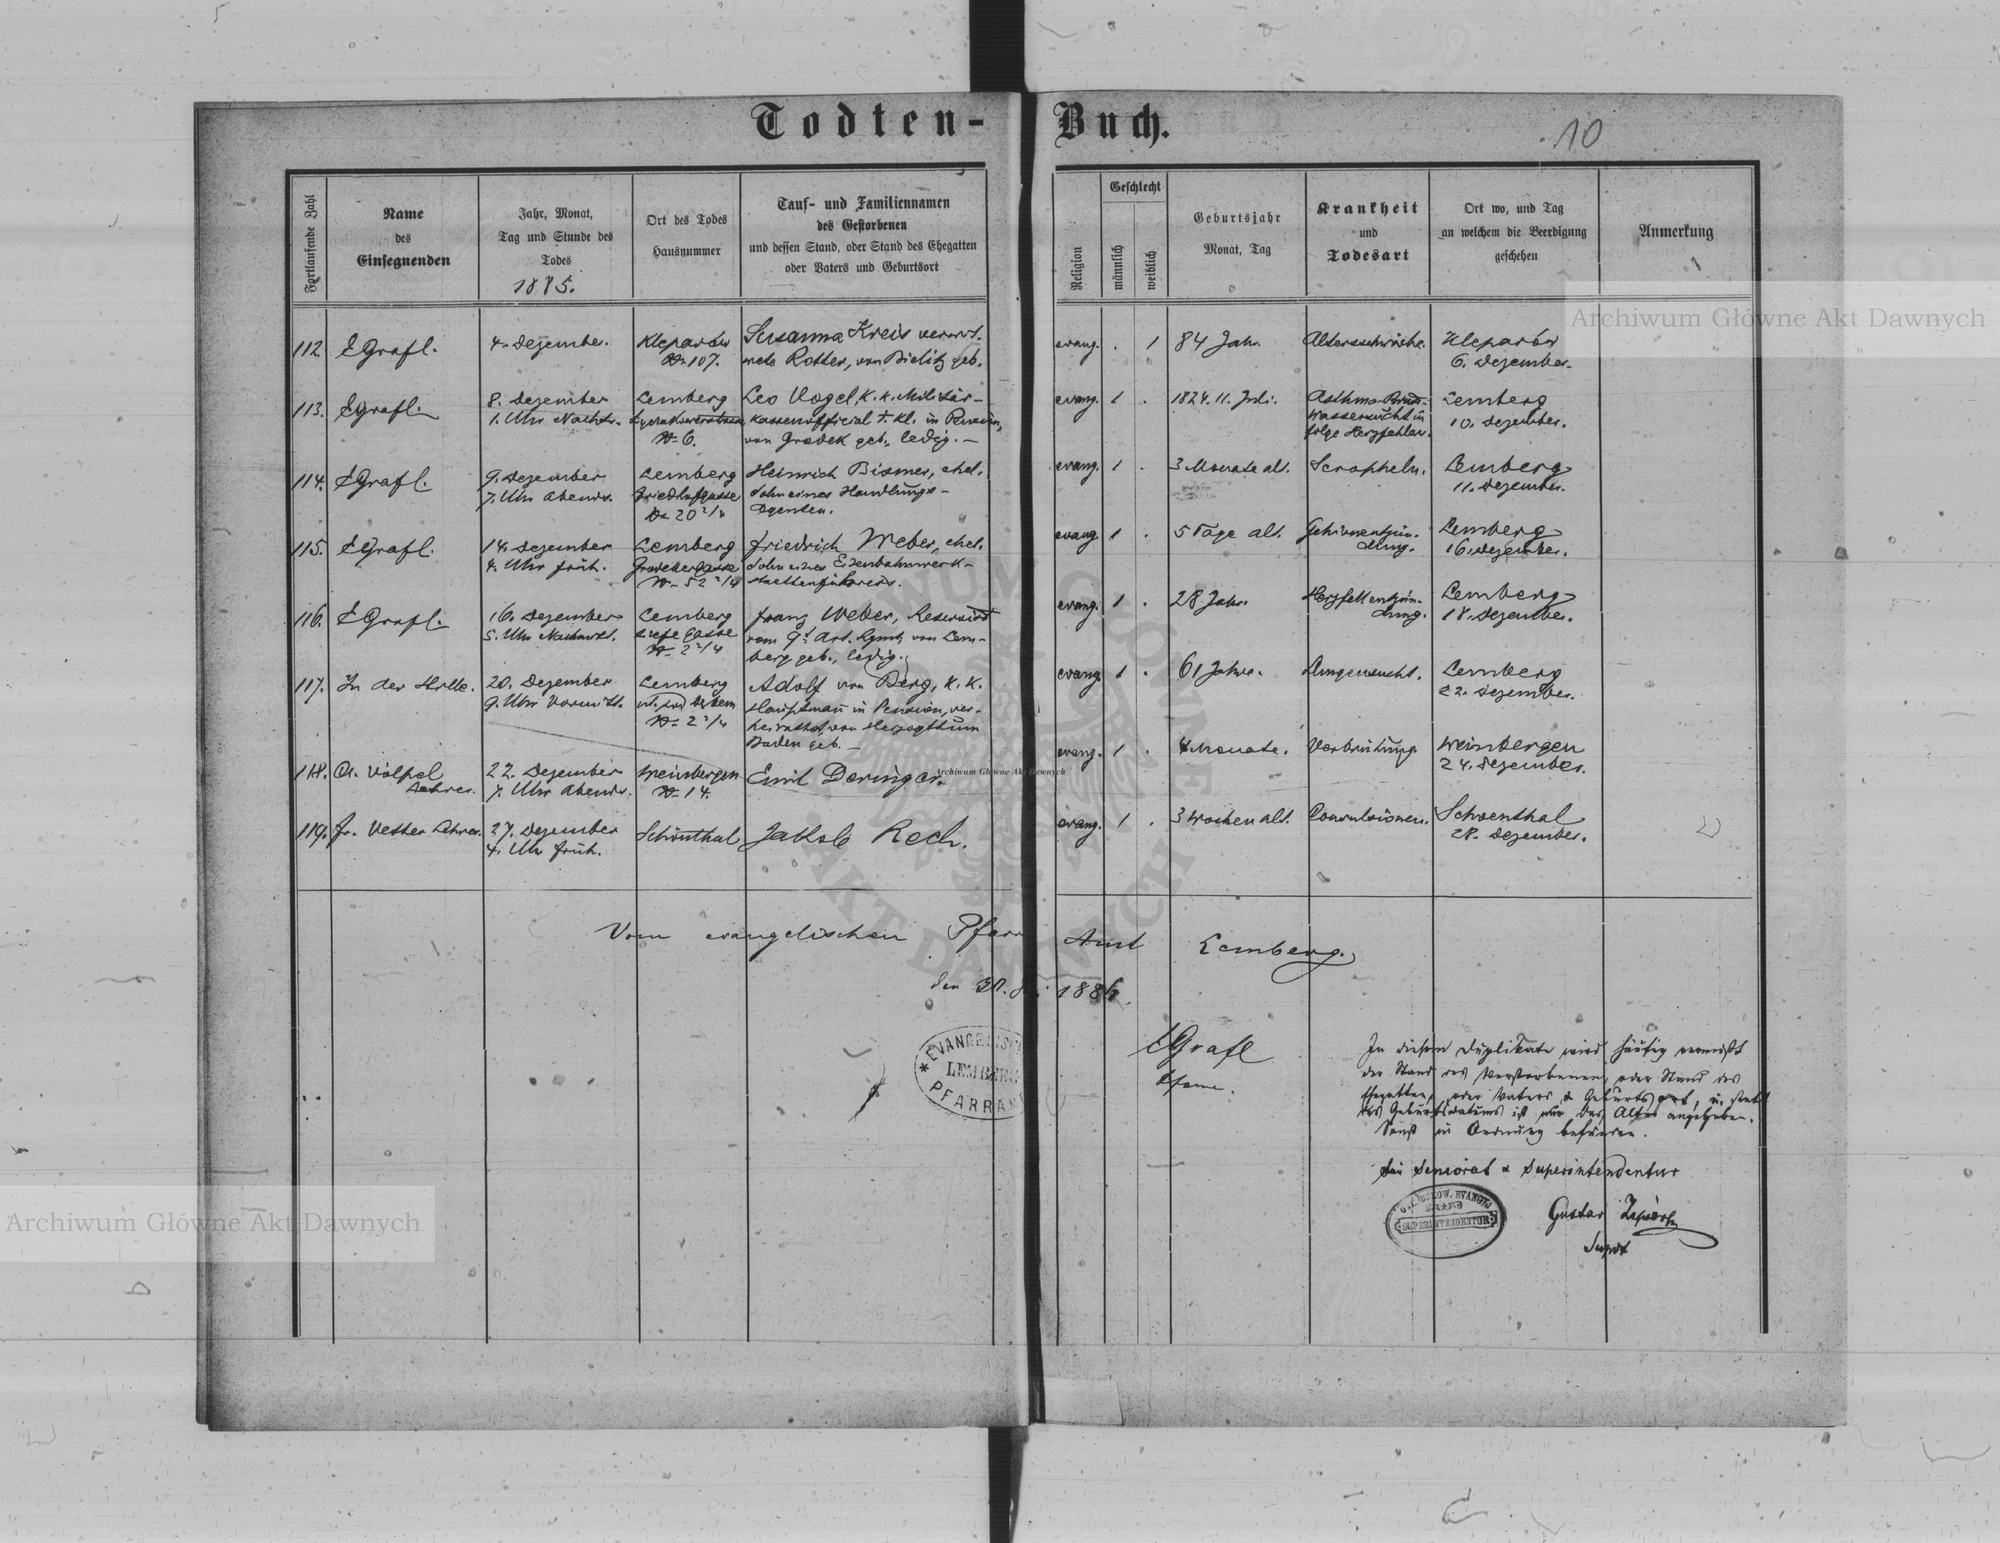 Todten-Buch.
10
Fortlaufende Zahl
Name
des
Einsegnenden
Jahr, Monat,
Tag und Stunde des
Todes
1885.
Ort des Todes
Hausnummer
Tauf- und Familiennamen
des Gestorbenen
und dessen Stand, oder Stand des Ehegatten
oder Vaters und Geburtsort
Religion
Geschlecht
männlich
weiblich
Geburtsjahr
Monat, Tag
Krankheit
und
Todesart
Ort wo, und Tag
an welchem die Beerdigung
geschehen
Anmerkung
112
EGrafl.
4. Dezember.
Kleparów
No 107.
Susanna Kreis verwit.
wete Rotter, von Bielitz geb.
evang. . 1
84 Jahr.
Altersschwäche.
Kleparów
6. Dezember.
113.
EGrafl.
8. Dezember
1. Uhr Nachts.
Lemberg
Lyczakowerstrasse
No 6.
Leo Vogel, k. k. Militär-
kassenofficial I. Kl. in Pension,
von Grodek geb., ledig. –
evang. 1 .
1824. 11. Juli.
Asthma Brust-
wassersucht in
folge Herzfehler.
Lemberg
10. Dezember.
114.
EGrafl.
9. Dezember
7. Uhr Abends.
Lemberg
Friedhofgasse
No 20 2/4
Heinrich Bismer, ehel.
Sohn eines Handlungs-
Agenten.
evang. 1 .
3 Monate alt.
Scropheln.
Lemberg
11. Dezember.
115.
EGrafl.
14. Dezember
4. Uhr früh.
Lemberg
Grodeker Gasse
No 52 2/4
Friedrich Weber, ehel.
Sohn eines Eisenbahnwerk-
stättenführers.
evang. 1 .
5 Tage alt.
Gehirnentzün-
dung.
Lemberg
16. Dezember.
116.
EGrafl.
16. Dezember
5. Uhr Nachmit.
Lemberg
Tiefe Gasse
No 2 2/4
Franz Weber, Reservist
vom 9t Art. Rgmt, von Lem-
berg geb., ledig.
evang. 1 .
28 Jahr.
Herzfellentzün-
dung.
Lemberg
18. Dezember.
117.
In der Stille.
20. Dezember
9. Uhr Vormitt.
Lemberg
No 2 2/4
Adolf von Berg, k. k.
Hauptmann in Pension, ver-
heirathet, von Herzogthum
Baden geb. –
evang. 1 .
61 Jahre.
Lungensucht.
Lemberg
22. Dezember.
118.
A. Völpel
Lehrer.
22. Dezember
7. Uhr Abends.
Weinbergen
No 14.
Emil Deringer.
evang. 1 .
4 Monate.
Verbrühung.
Weinbergen
24. Dezember.
119.
Fr. Vetter Lehrer.
27. Dezember
4. Uhr früh.
Schönthal
Jakob Rech.
evang. 1 .
3 Wochen alt.
Convulsionen.
Schoenthal
28. Dezember.
Vom evangelischen Pfarr Amt Lemberg.
den 30. 1886.
EGrafl
Pfarrer.
EVANGELISCH
LEMBERG
PFARRAMT
In diesem Duplikate wird häufig vermißt
der Stand des Verstorbenen, oder Stand des
Ehegatten, oder Vaters & Geburtsort, u. statt
des Geburtsdatums ist nur das Alter angegeben.
Sonst in Ordnung befunden.
Seniorat & Superintendentur
BUKOW. EVANG.
SUPERINTENDENTUR
Gustav
Supdt
Archiwum Główne Akt Dawnych
Archiwum Główne Akt Dawnych
Archiwum Główne Akt Dawnych